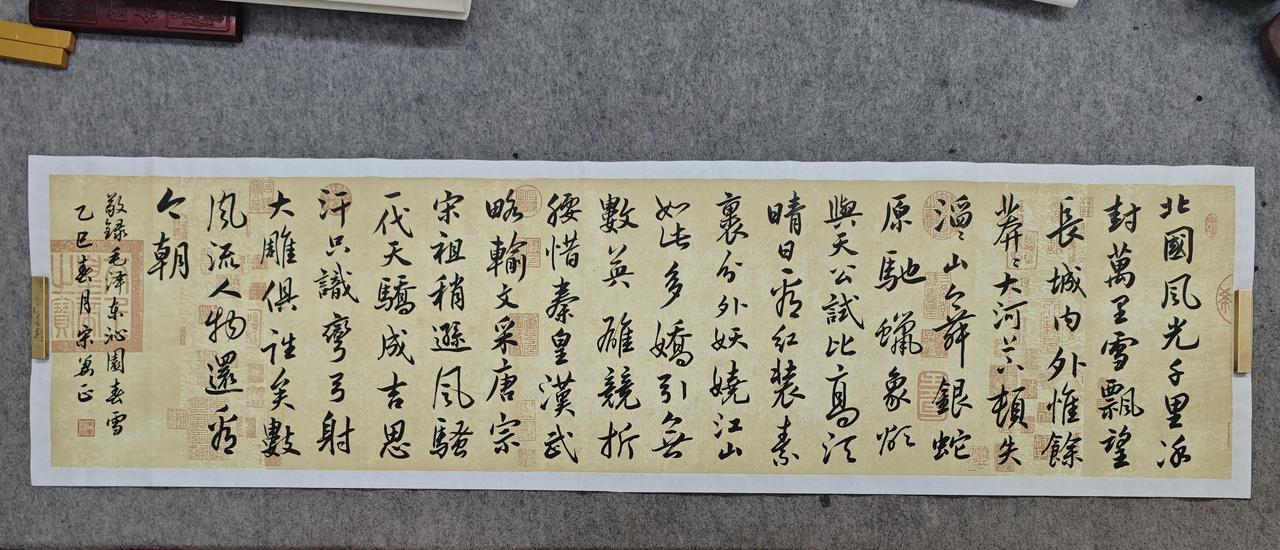 北國風光千里冰
封萬里雪飄望
長城内外惟餘
莽〻大河上下頓失
滔〻山舞銀蛇
原馳蠟象欲
與天公試比高須
晴日看紅裝素
裹分外妖嬈江山
如此多嬌引無
數英雄競折
腰惜秦皇漢武
略輸文采唐宗
宋祖稍遜風騷
一代天驕成吉思
汗只識彎弓射
大雕俱往矣數
風流人物還看
今朝
敬録毛泽东沁園春雪
乙巳春月宋正